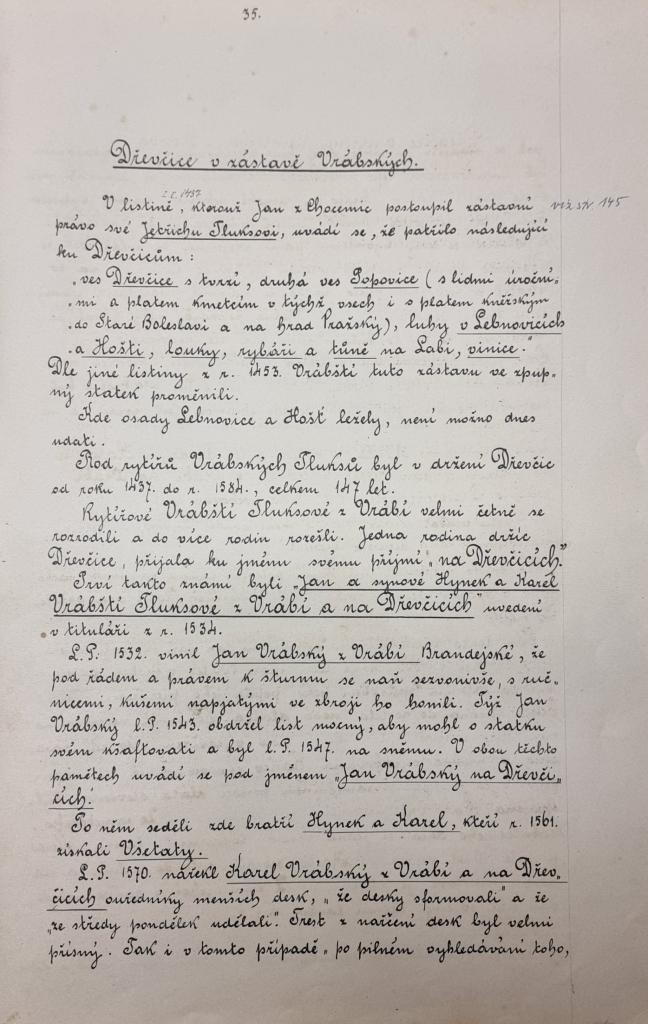 35.
Dřevčice v zástavě Vrábských.
z r. 1437
V listině, kterouž Jan z Chocemic postoupil zástavní viz str. 145
právo své Jetřichu Tluksovi, uvádí se, že patřilo následující
ku Dřevčicům:
„ves Dřevčice s tvrzí, druhá ves Popovice (s lidmi úroční„
„mi a platem kmetcím v týchž vsech i s platem kněžským
„do Staré Boleslavi a na hrad Pražský), luhy v Lebnovicích
„a Hošti, louky, rybáři a tůně na Labi, vinice."
Dle jiné listiny z r. 1453. Vrábští tuto zástavu ve zpup„
ný statek proměnili.
Kde osady Lebnovice a Hošť ležely, není možno dnes
udati.
Rod rytířů Vrábských Tluksů byl v držení Dřevčic
od roku 1437. do r. 1584., celkem 147 let.
Rytířové Vrábští Tluksové z Vrábí velmi četně se
rozrodili a do více rodin rozešli. Jedna rodina držíc
Dřevčice, přijala ku jménu svému příjmí „na Dřevčicích."
Prví takto známí byli „Jan a synové Hynek a Karel
Vrábští Tluksové z Vrábí a na Dřevčicích" uvedeni
v tituláři z r. 1534.
L.P. 1532. vinil Jan Vrábský z Vrábí Brandejské, že
pod řádem a právem k šturmu se naň sezvonivše, s ruč„
nicemi, kušemi napjatými ve zbroji ho honili. Týž Jan
Vrábský l.P. 1543. obdržel list mocný, aby mohl o statku
svém kšaftovati a byl l.P. 1547. na sněmu. V obou těchto
pamětech uvádí se pod jménem „Jan Vrábský na Dřevči„
cích."
Po něm seděli zde bratří Hynek a Karel, kteří r. 1561.
získali Všetaty.
L.P. 1570. nařekl Karel Vrábský z Vrábí a na Dřev„
čicích ouředníky menších desk, „že desky sformovali" a že
„ze středy pondělek udělali". Trest z nařčení desk byl velmi
přísný. Tak i v tomto případě „po pilném vyhledávání toho,